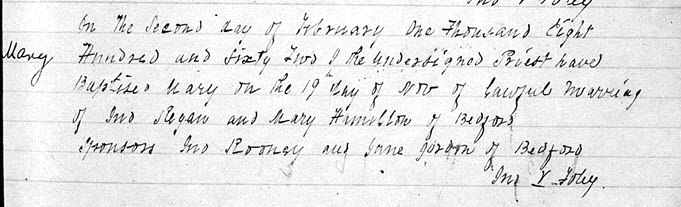 On the Second day of February One Thousand Eight
Mary Hundred and Sixty Two I the undersigned Priest have
Baptised Mary on the 19th day of Nov of Lawful Marriag
of Jno Regan and Mary Hamilton of Bedford
Sponsors Jno Rooney and Jane Gordon of Bedford
Jno V Foley